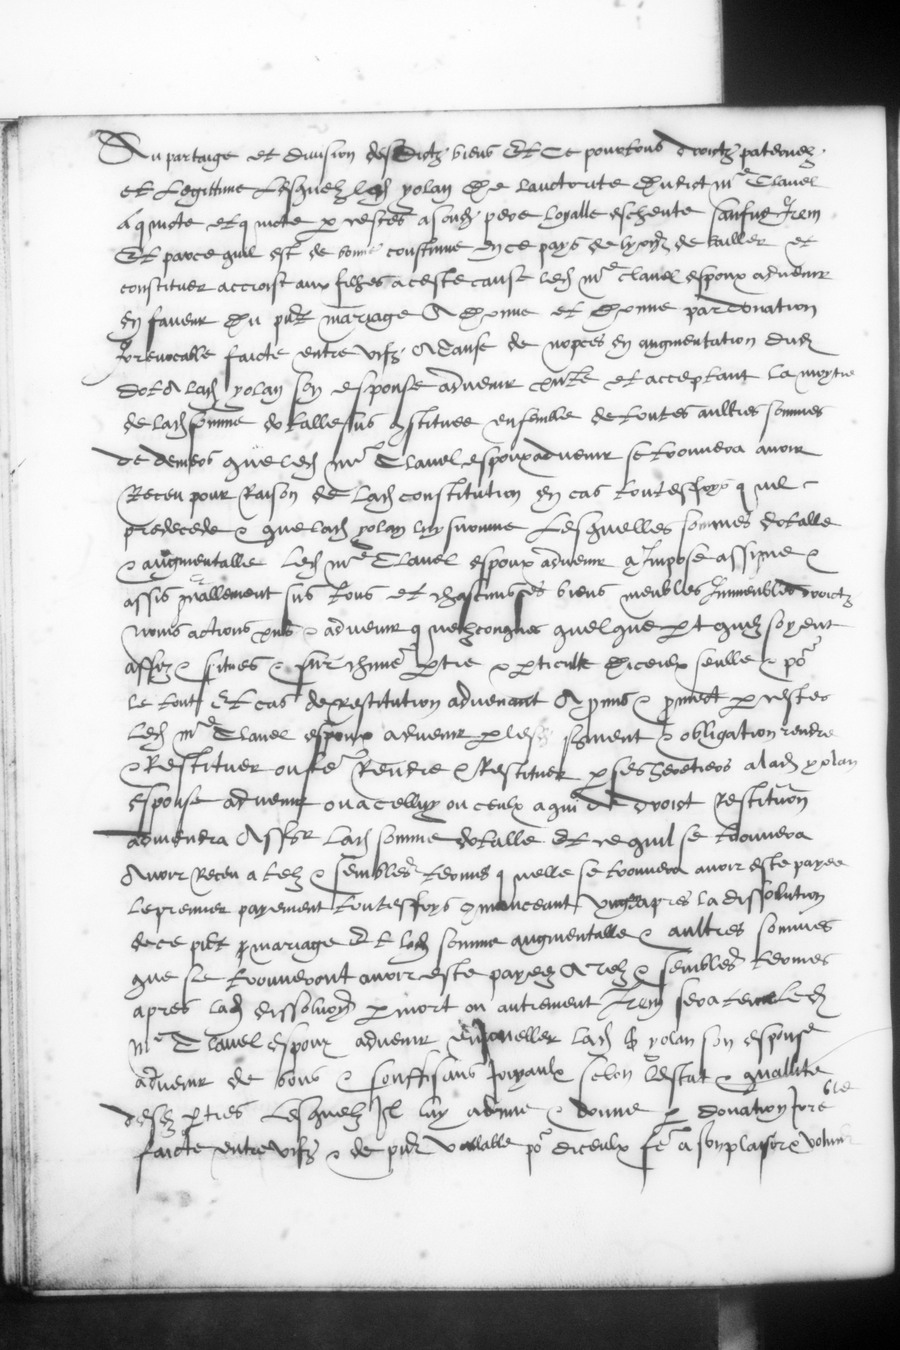 Au partaige et division desdictz biens Et Ce pour tous droictz paternelz
et Legittime Lesquelz led yolan De lauctorite Dudict me Clavel
a quicte et quicte p restes a sond pere loyalle escheute saufve Item
Et parce quil est de bonne coustume en ce pays de lyonn de bailler et
constituer accroist aux filhes a ceste cause led me Clavel espoux advenir
en faveur Du pnt mariage A Donne et Donne par donation
Irrevocalle faicte entre vifz A cause de nopces en augmentation dud
dot A lad yolan son espouse advenir pnte et acceptant La moytie
de lad somme dotalle sus constituee ensemble de toutes aultres sommes
de deniers que led me Clavel espoux advenir se trouvera avoir
Receu pour Raison de Lad constitution en cas toutesfoys quil
predecede & que lad yolan luy survive Lesquelles sommes dotalle
& augmentalle Led me Clavel espoux advenir a Impose assigne &
assis gnallement sus tous et chascuns ses biens meubles Immeubles droictz
noms actions pns & advenir quelzconques quelque pt quilz soyent
assiz & situes & sur chune ptie & pticulle Diceulx seulle & po
le tout Et cas de restitution advenant A promis & promect p restes
Led me Clavel espoux advenir p lesd sement & obligation rendre
& Restituer ou fe Rendre & Restituer p ses heretiers a lad yolan
espouse advenir ou a celluy ou ceulx a qui de droict Restitution
adviendra Assr Lad somme dotalle Et ce quil se trouvera
Avoir Receu a telz & semblables termes quelle se trouvera avoir este payee
Le premier payement toutesfoys comanceant ung apres la dissolution
de ce pnt mariage Et lad somme augmentalle & aultres sommes
que se trouveront avoir este payez A telz & semblables termes
apres lad dissolution p mort ou autrement Item sera tenu Led
me Clavel espoux advenir enjoueller lad yolan son espouse
advenir de bons & souffisans Joyaulx selon lestat & quallite
desd pties Lesquelz Il luy a donne & donne p donation Irreble
faicte entre vifz & de pnt vallable po diceulx fe a son plaisir & volunte